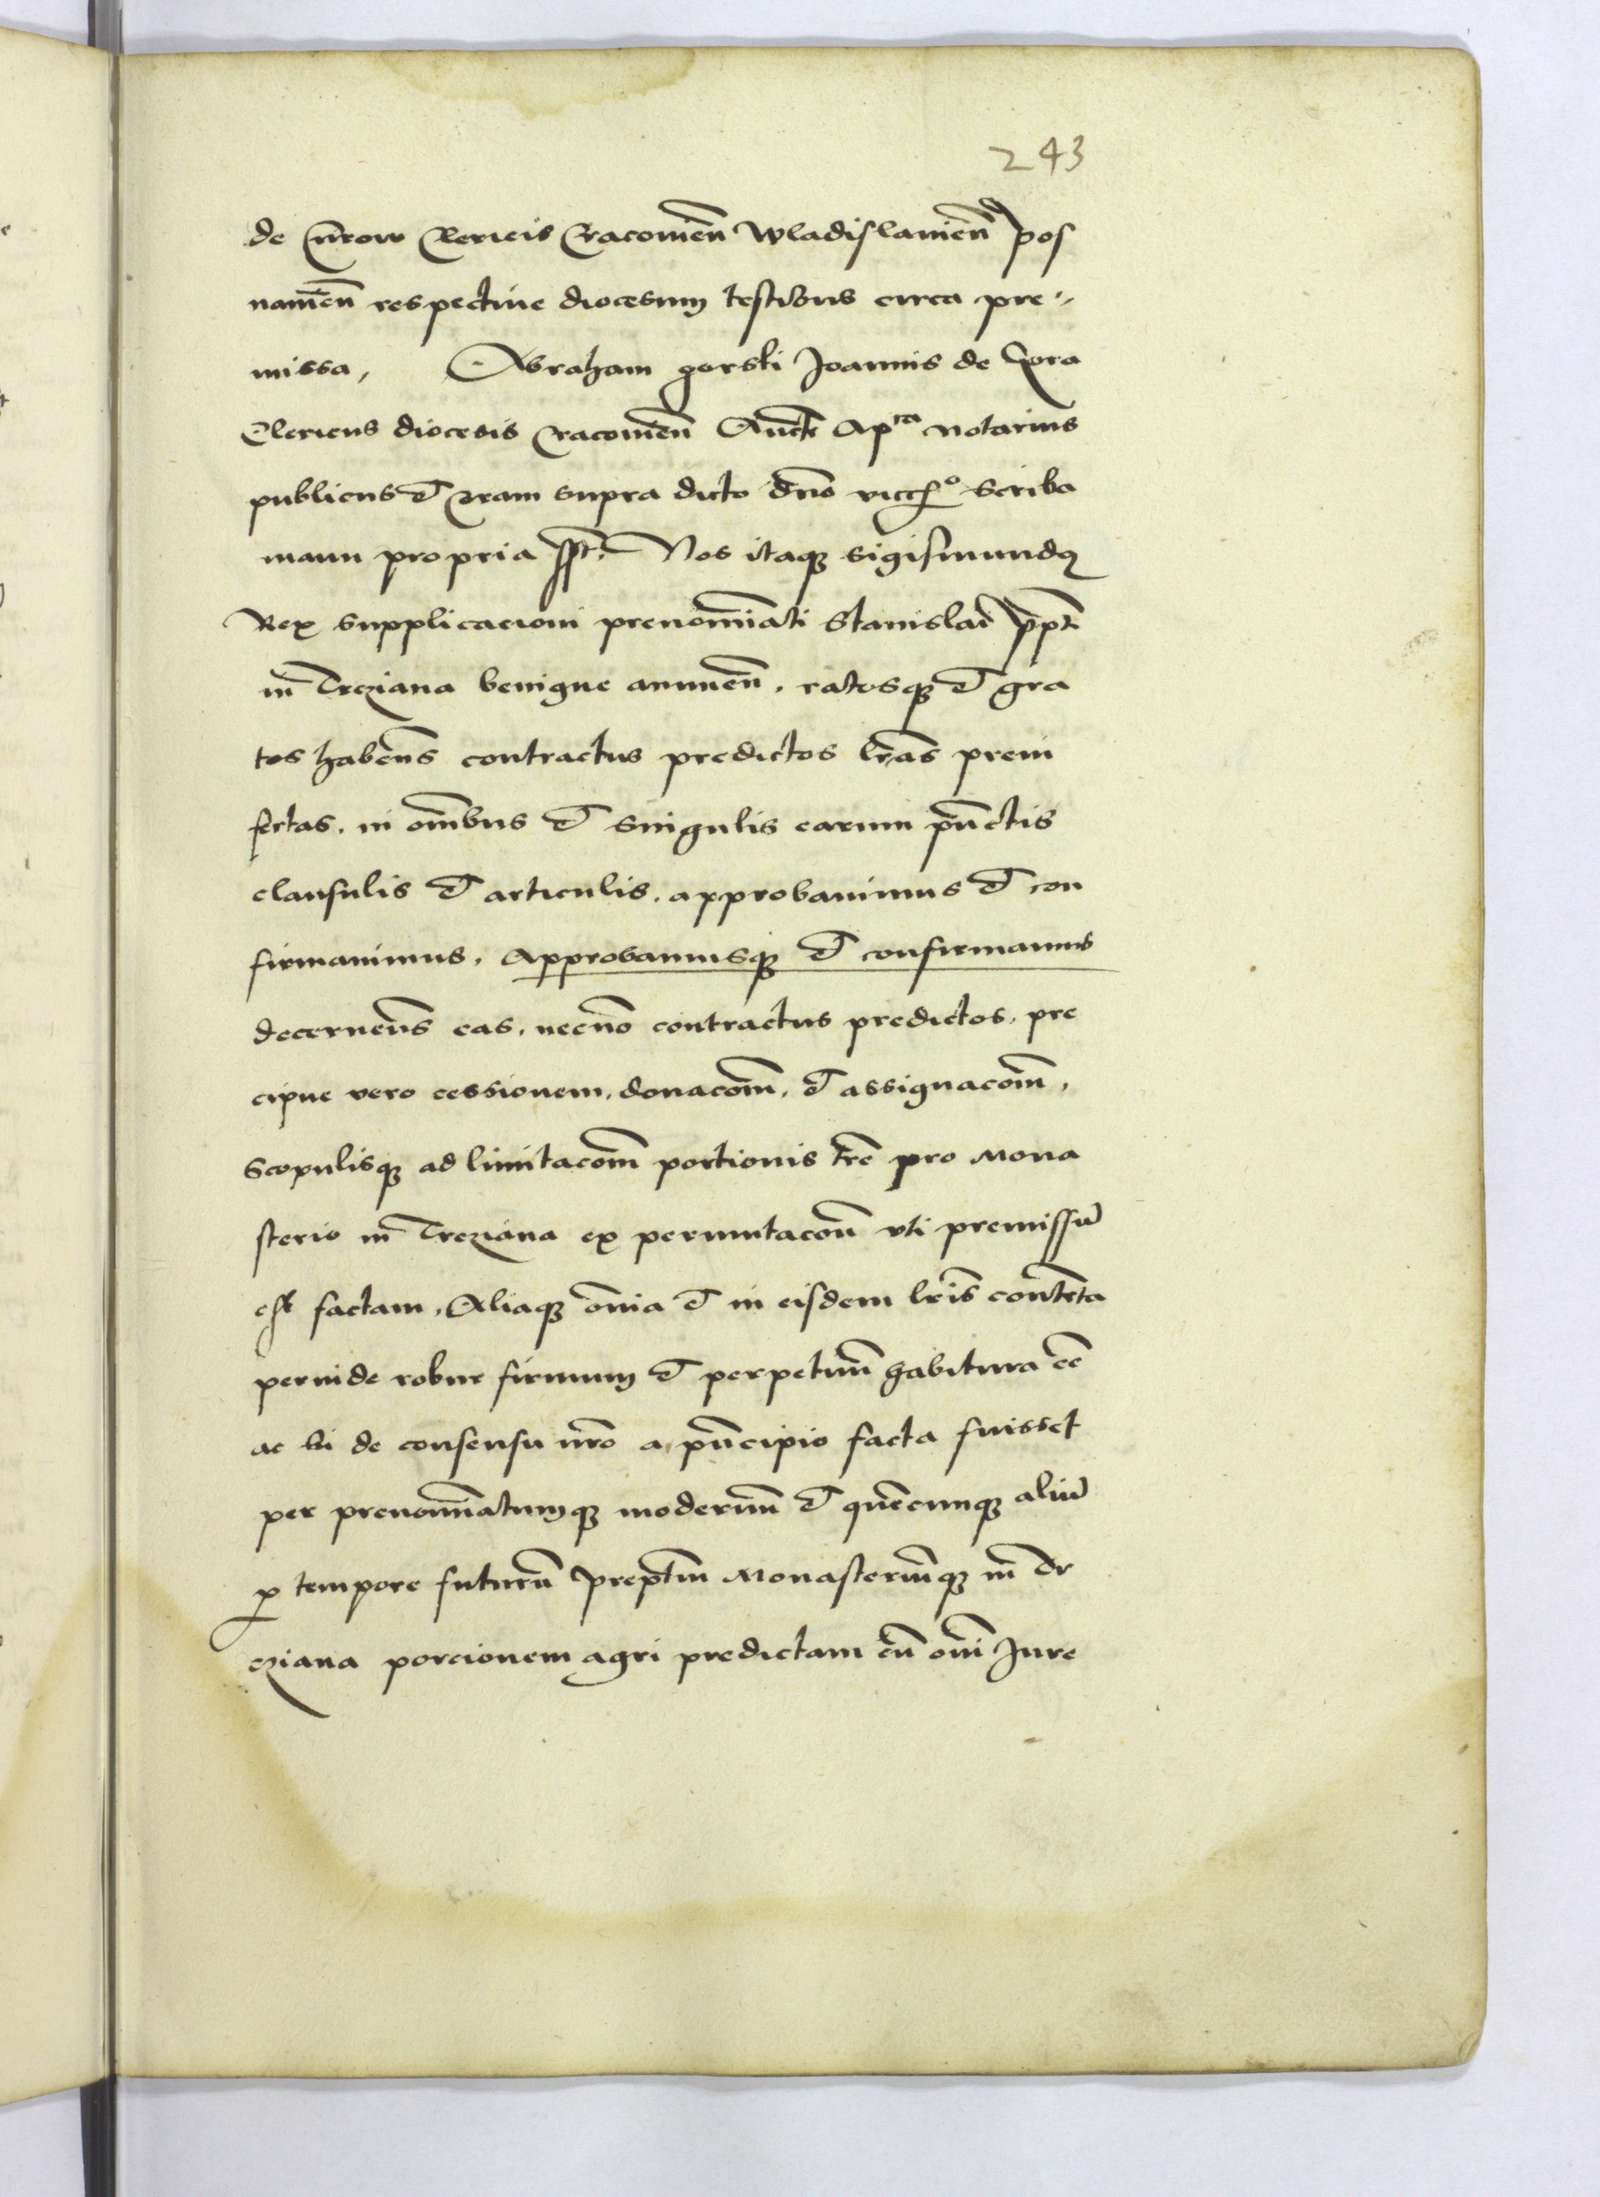 243
de Clericis Cracovien̄ Wladislavien̄ Pos
namien̄ respective diocesum testibus circa pre⸗
missa, Abraham gorski Joannis de Gora
Clericus diocesis Cracovien̄ Auctē Apᶜᵃ Notarius
publicus et coram supra dicto dn̄o scriba
manu propria sst. Nos itaq3 sigismundꝯ
Rex supplicacioni prenominati Stanislai p̄pti
in Trzciana benigne annuen̄. ratosq3 et gra
tos haben̄s contractus predictos lr̄as prein
sertas. in om̄ibus et singulis earum pūctis
clausulis et articulis. approbavimus et con
firmavimus. Approbamusq3 et confirmamus
decernen̄s eas. necnō contractus predictos. pre
cipue vero cessionem. donacōm. et assignacōm.
Scopulisq3 ad limitacōm portionis tr̄e pro Mona
sterio in Trzciana ex permutacōn uti premissū
est factam. Aliaq3 om̄ia et in eisdem lr̄is contēta
perinde robur firmum et perpetuū habitura eē
ac si de consensu nr̄o a principio facta fuisset
per prenominatumq3 modernū et quēcunq3 aliū
p tempore futurū prep̄tm Monasteriūq3 in Tr
cziana porcionem agri predictam cū om̄i Jure